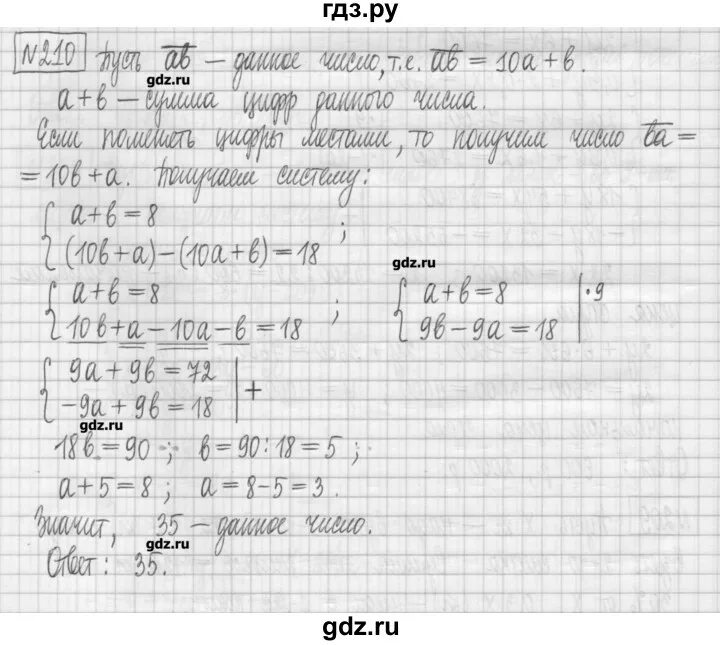 гдз.ру
№210 Пусть ab — данное число, т.е. ab = 10a + b.
gdz.ru
a + b — сумма цифр данного числа.
Если поменять цифры местами, то получим число ba =
= 10b + a. Получаем систему:
{ a + b = 8
(10b + a) − (10a + b) = 18 ;
gdz.ru
{ a + b = 8
10b + a − 10a − b = 18 ;
{ a + b = 8 | ·9
9b − 9a = 18
{ 9a + 9b = 72 | +
−9a + 9b = 18
gdz.ru
18b = 90 ; b = 90 : 18 = 5 ;
a + 5 = 8 ; a = 8 − 5 = 3 .
Значит, 35 — данное число.
gdz.ru
Ответ: 35.
gdz.ru